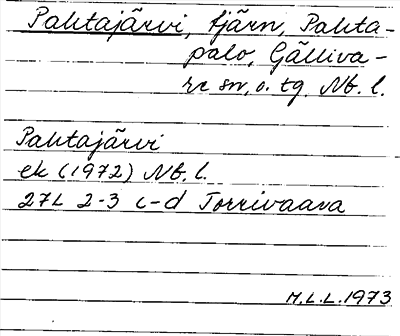 Pahtajärvi, tjärn, Pahta-
palo, Gälliva-
re sn, o. tg. Nb. l.
Pahtajärvi
ek (1972) Nb. l.
27L 2-3 c-d Torrivaara
M.L.L. 1973